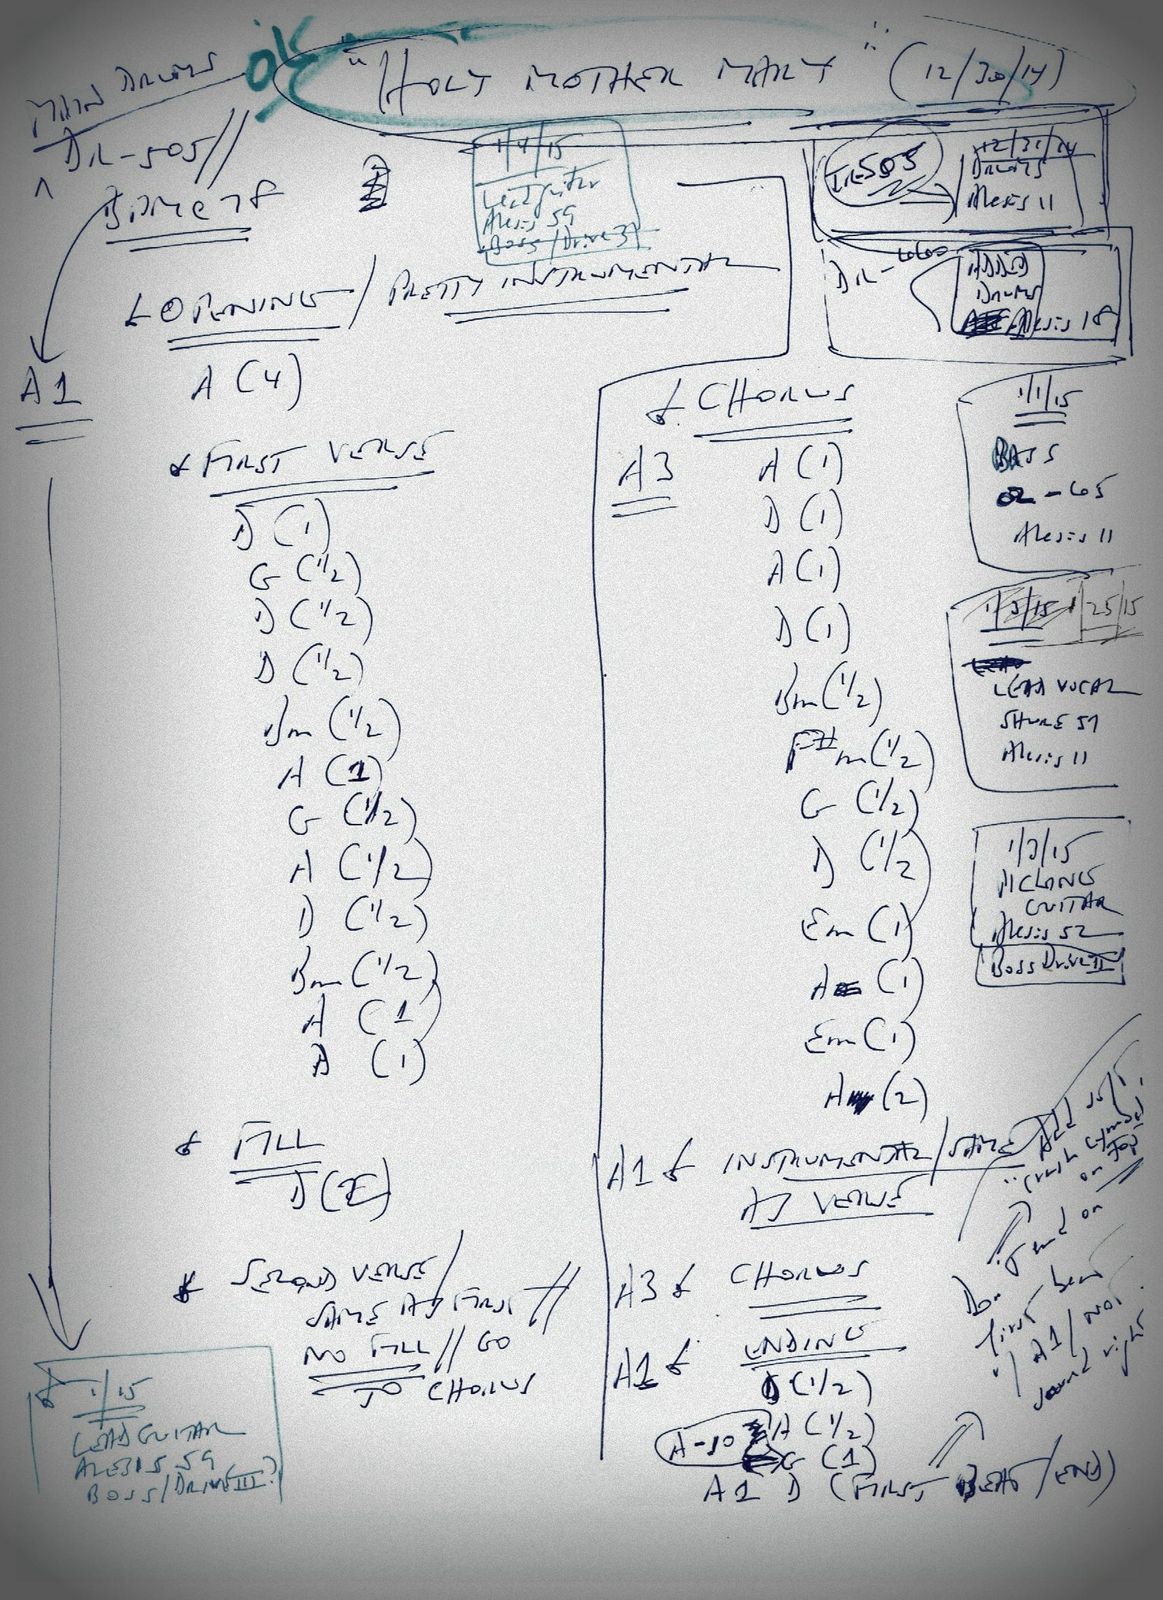 OK
"HOLY MOTHER MARY" (12/30/14)
MAIN DRUMS
DR-505//
1/4/15
Lead guitar
Alesis 59
Boss/Drive 3
DR-505
12/31/14
DRUMS
Alesis 11
DR-660
ADDED
DRUMS
Alesis 18
OPENING / PRETTY INSTRUMENTAL
A1
A (4)
FIRST VERSE
D (1)
G (1/2)
D (1/2)
D (1/2)
Bm (1/2)
A (1)
G (1/2)
A (1/2)
D (1/2)
Bm (1/2)
A (1)
D (1)
FILL
D
SECOND VERSE/
SAME AS FIRST //
NO FILL // GO
TO CHORUS
1/15
LEAD GUITAR
ALESIS 59
BOSS/DRIVE III?
CHORUS
A3
A (1)
D (1)
A (1)
D (1)
Bm (1/2)
F#m (1/2)
G (1/2)
D (1/2)
Em (1)
A (1)
Em (1)
A (2)
A1 INSTRUMENTAL/SAME
AS VERSE
A3 CHORUS
A1 ENDING
D (1/2)
A (1/2)
A-10
G (1)
A1 D (FIRST BEAT/END)
1/1/15
BASS
Alesis 11
1/3/15
1/25/15
LEAD VOCAL
SHURE 57
Alesis 11
1/3/15
GUITAR
Alesis 52
Boss Drive II
Add
"crash cymbal
on top
end on
first beat
A1/not
sound right